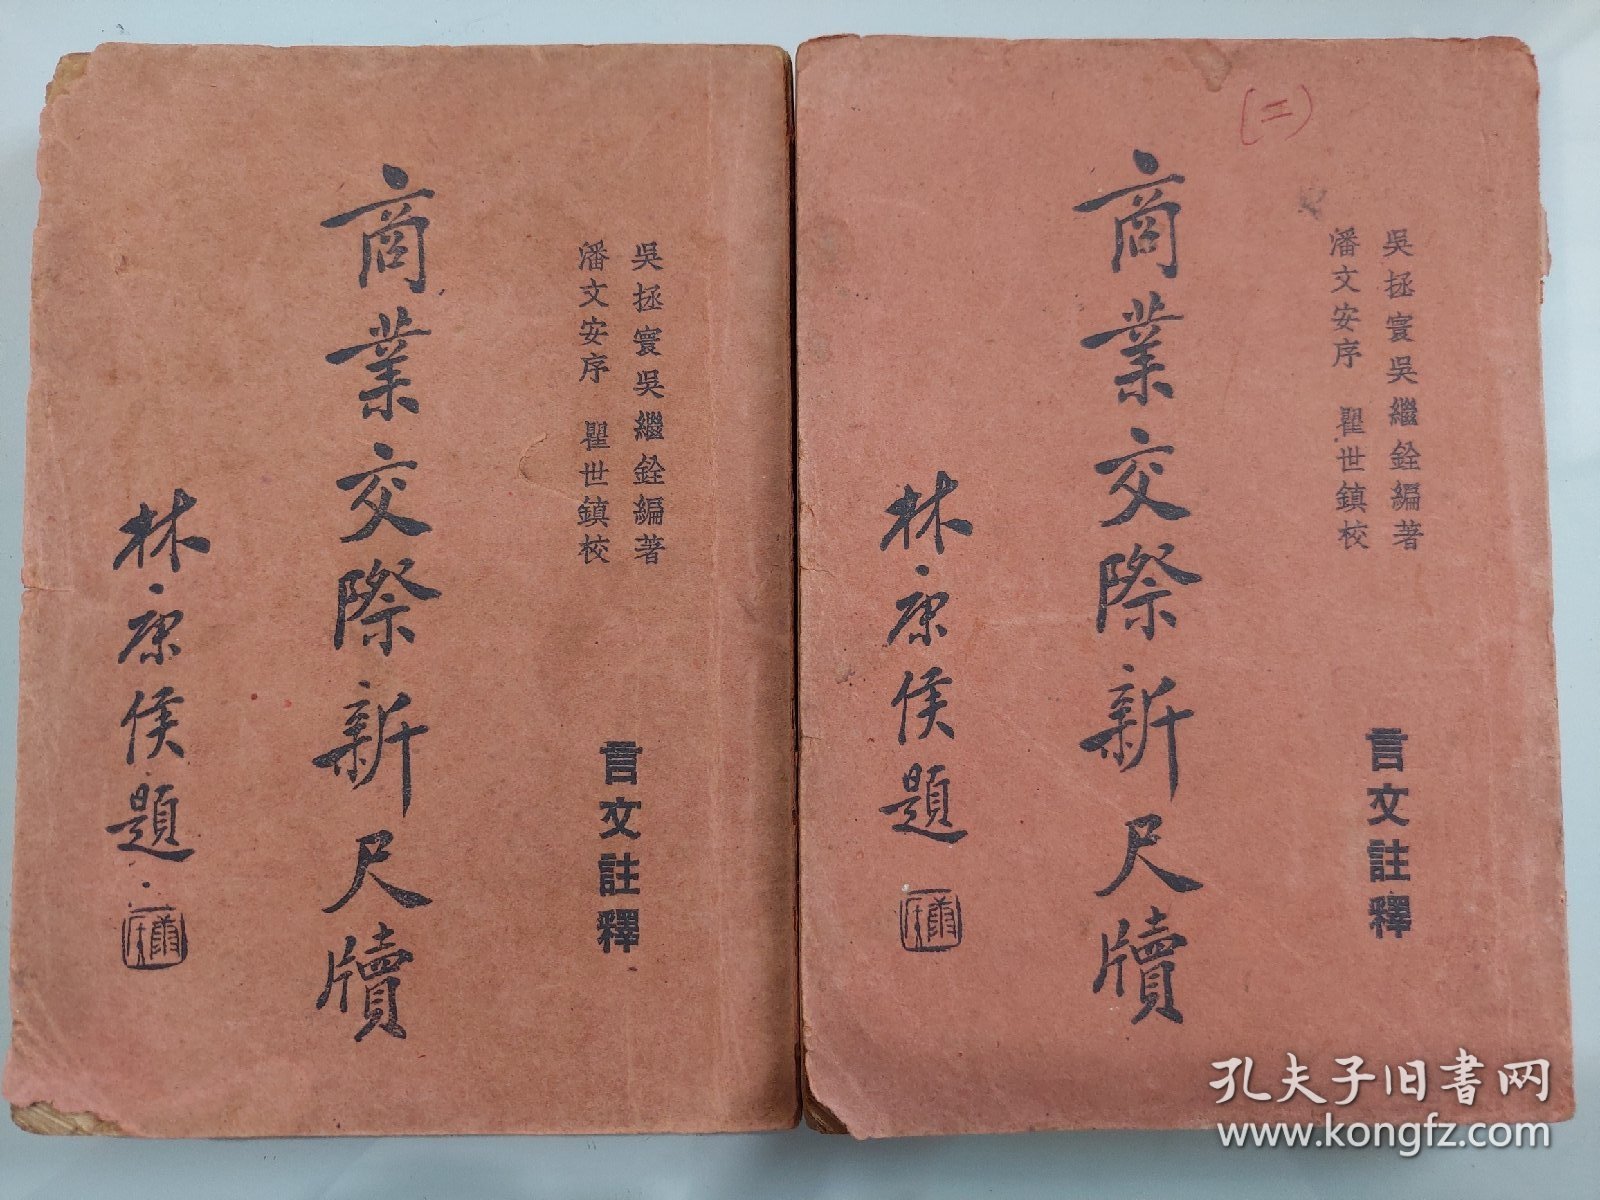 吳拯寰吳繼銓編著
潘文安序 瞿世鎮校
言文註釋
商業交際新尺牘
林康侯題
(二)
吳拯寰吳繼銓編著
潘文安序 瞿世鎮校
言文註釋
商業交際新尺牘
林康侯題
孔夫子旧書网
www.kongfz.com